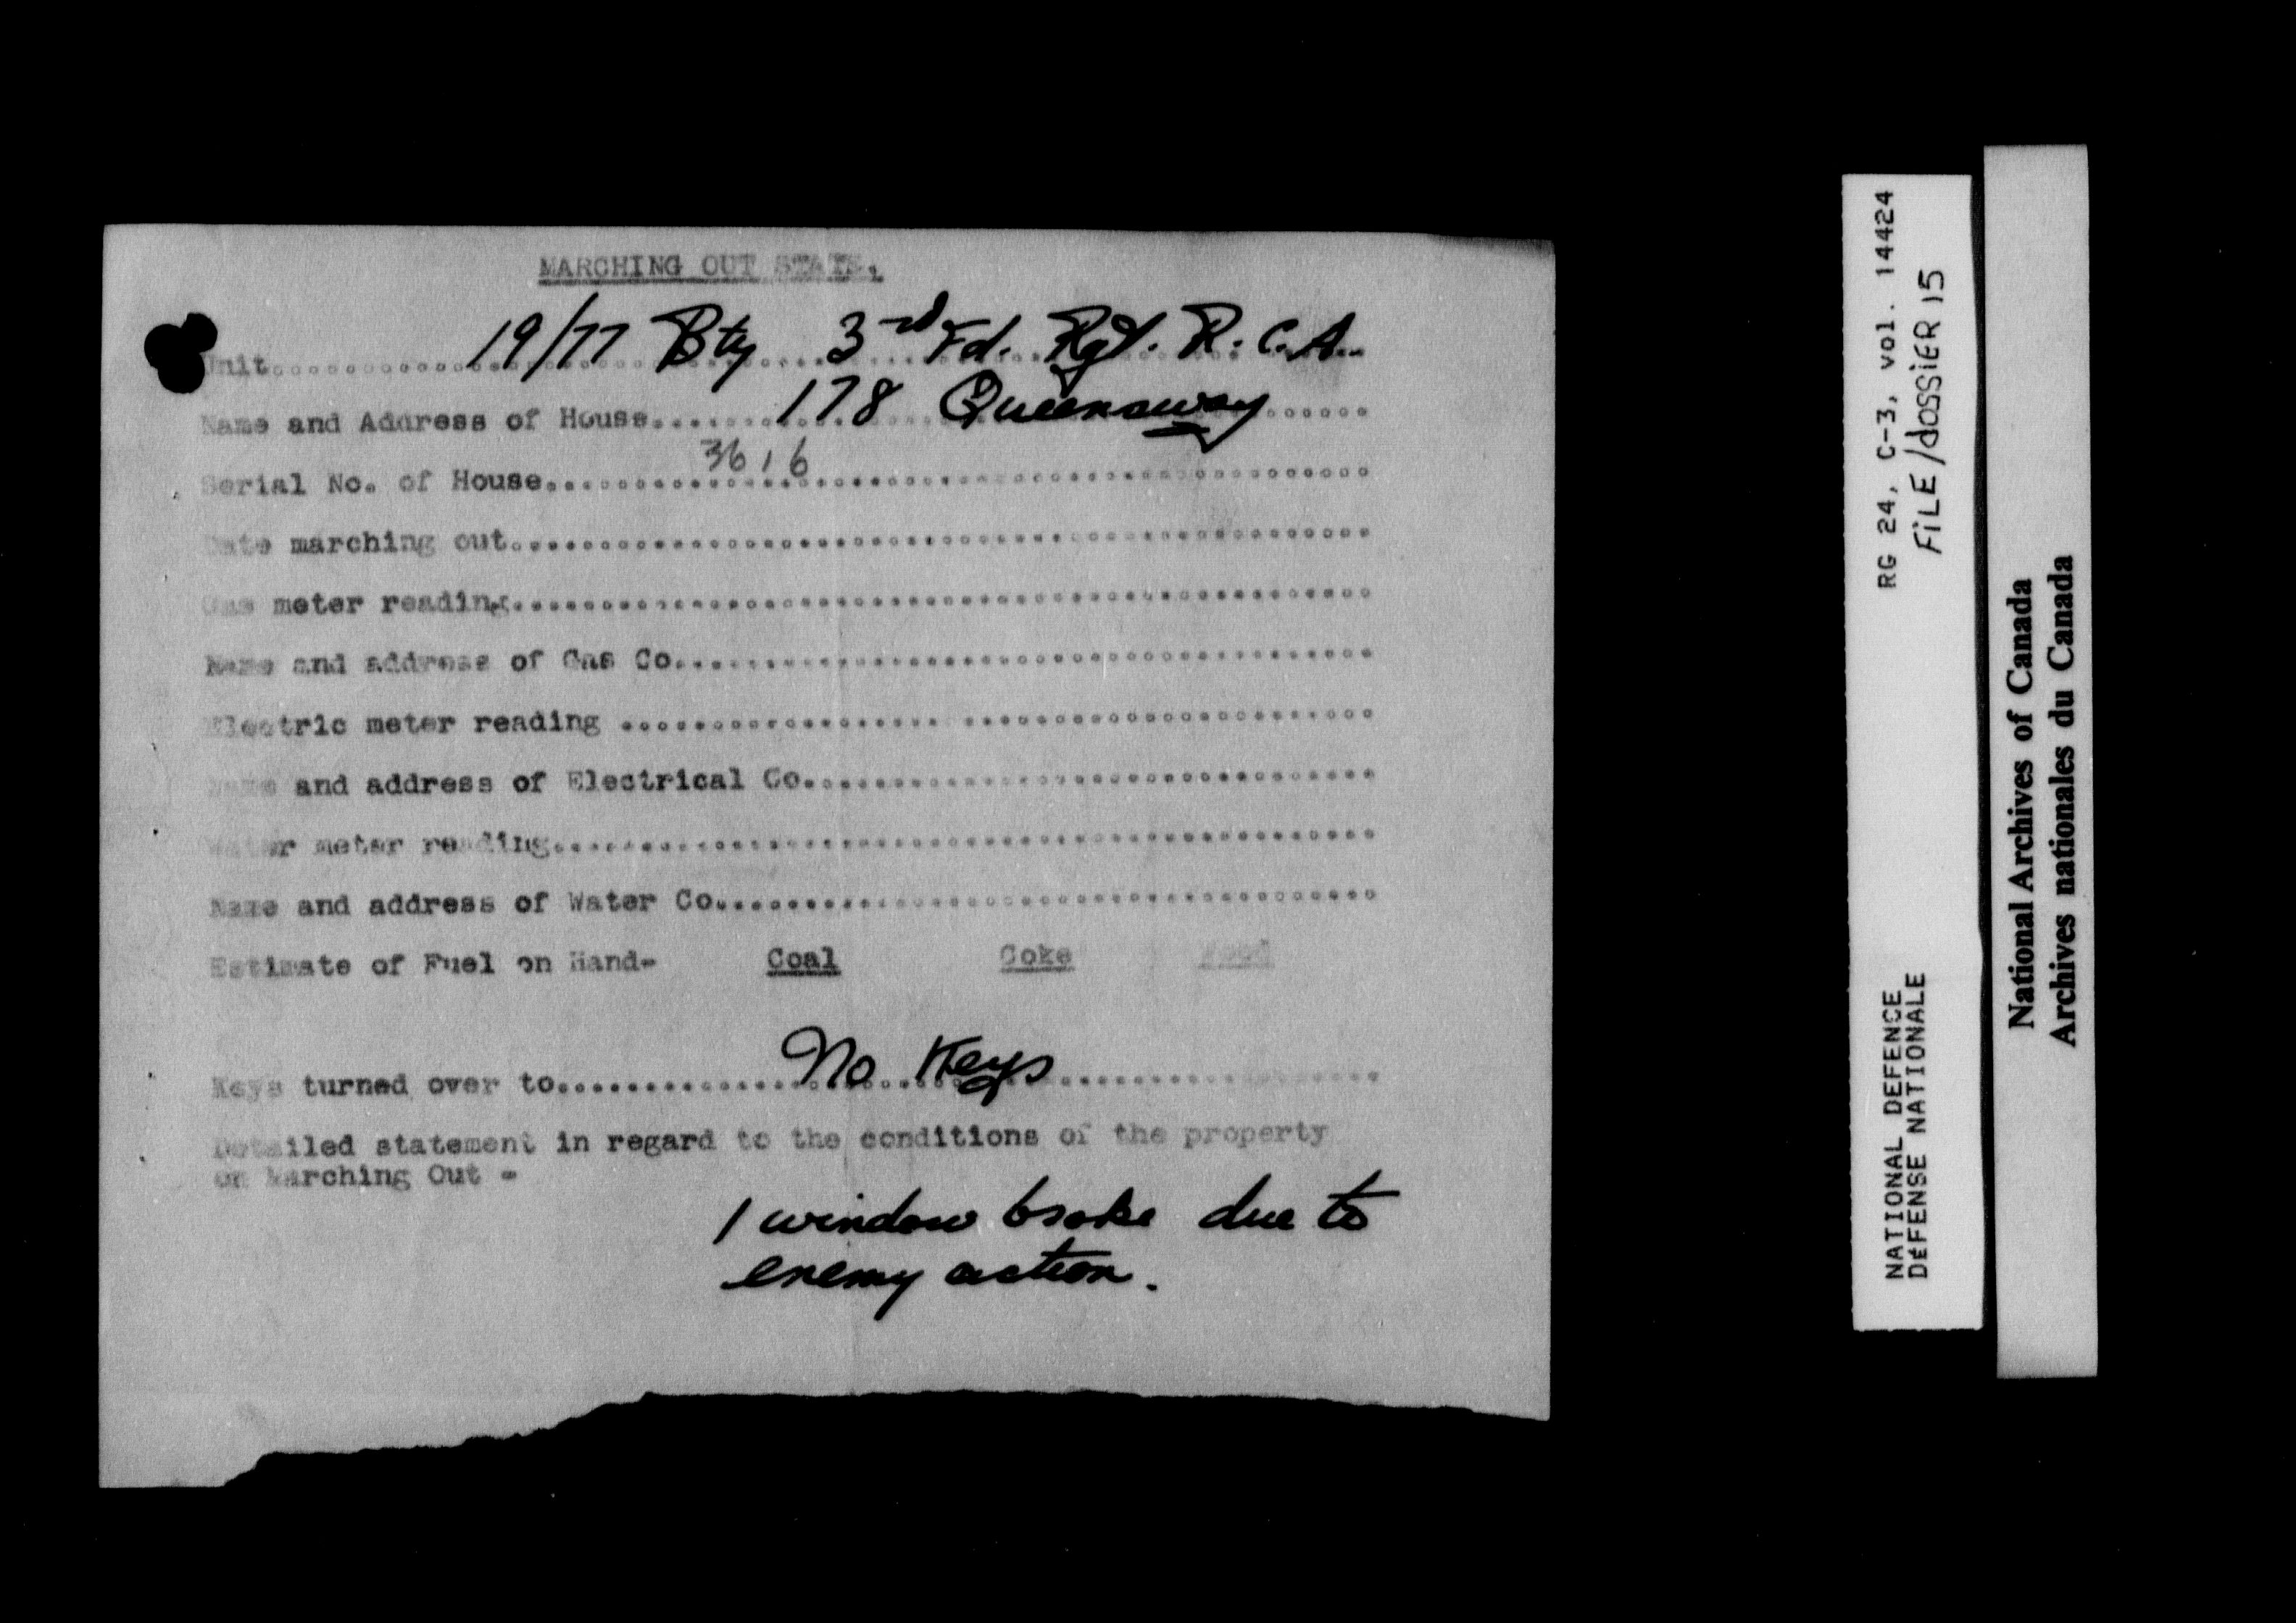 MARCHING OUT STATE.
Unit.......... 19/77 Bty 3rd Fd. Rgt. R.C.A.
Name and Address of House.......... 178 Queensway
Serial No. of House.......... 3616
Date marching out..........
Gas meter reading..........
Name and address of Gas Co..........
Electric meter reading ..........
Name and address of Electrical Co..........
Water meter reading..........
Name and address of Water Co..........
Estimate of Fuel on Hand- Coal Coke
Keys turned over to.......... No Keys
Detailed statement in regard to the conditions of the property
on Marching Out -
1 window broke due to
enemy action.
RG 24, C-3, vol. 14424
FiLE/dOSSiER 15
NATIONAL DEFENCE
DéFENSE NATIONALE
National Archives of Canada
Archives nationales du Canada